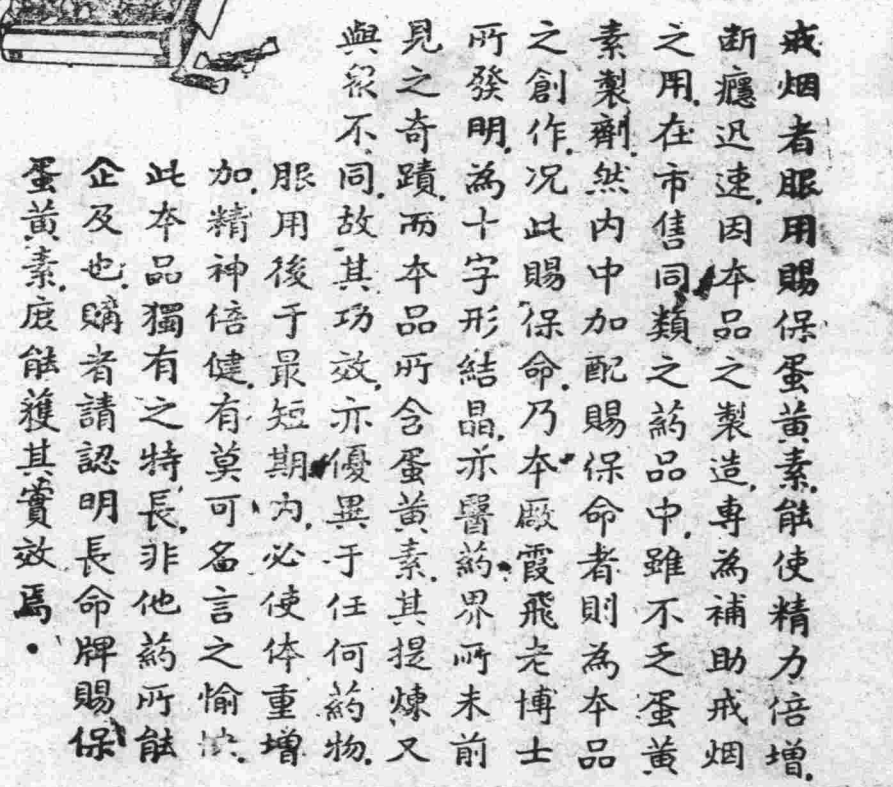 戒烟者服用賜保蛋黃素.能使精力倍增.
斷癮迅速.因本品之製造.專為補助戒烟
之用.在市售同類之葯品中.雖不乏蛋黃
素製劑.然内中加配賜保命者則為本品
之創作.况此賜保命.乃本廠霞飛老博士
所發明.為十字形結晶.亦醫葯界所未前
見之奇蹟.而本品所含蛋黃素.其提煉又
與衆不同.故其功效.亦優異于任何葯物.
服用後于最短期内.必使体重增
加.精神倍健.有莫可名言之愉快.
此本品獨有之特長.非他葯所能
企及也.購者請認明長命牌賜保
蛋黃素.庶能獲其實效焉.